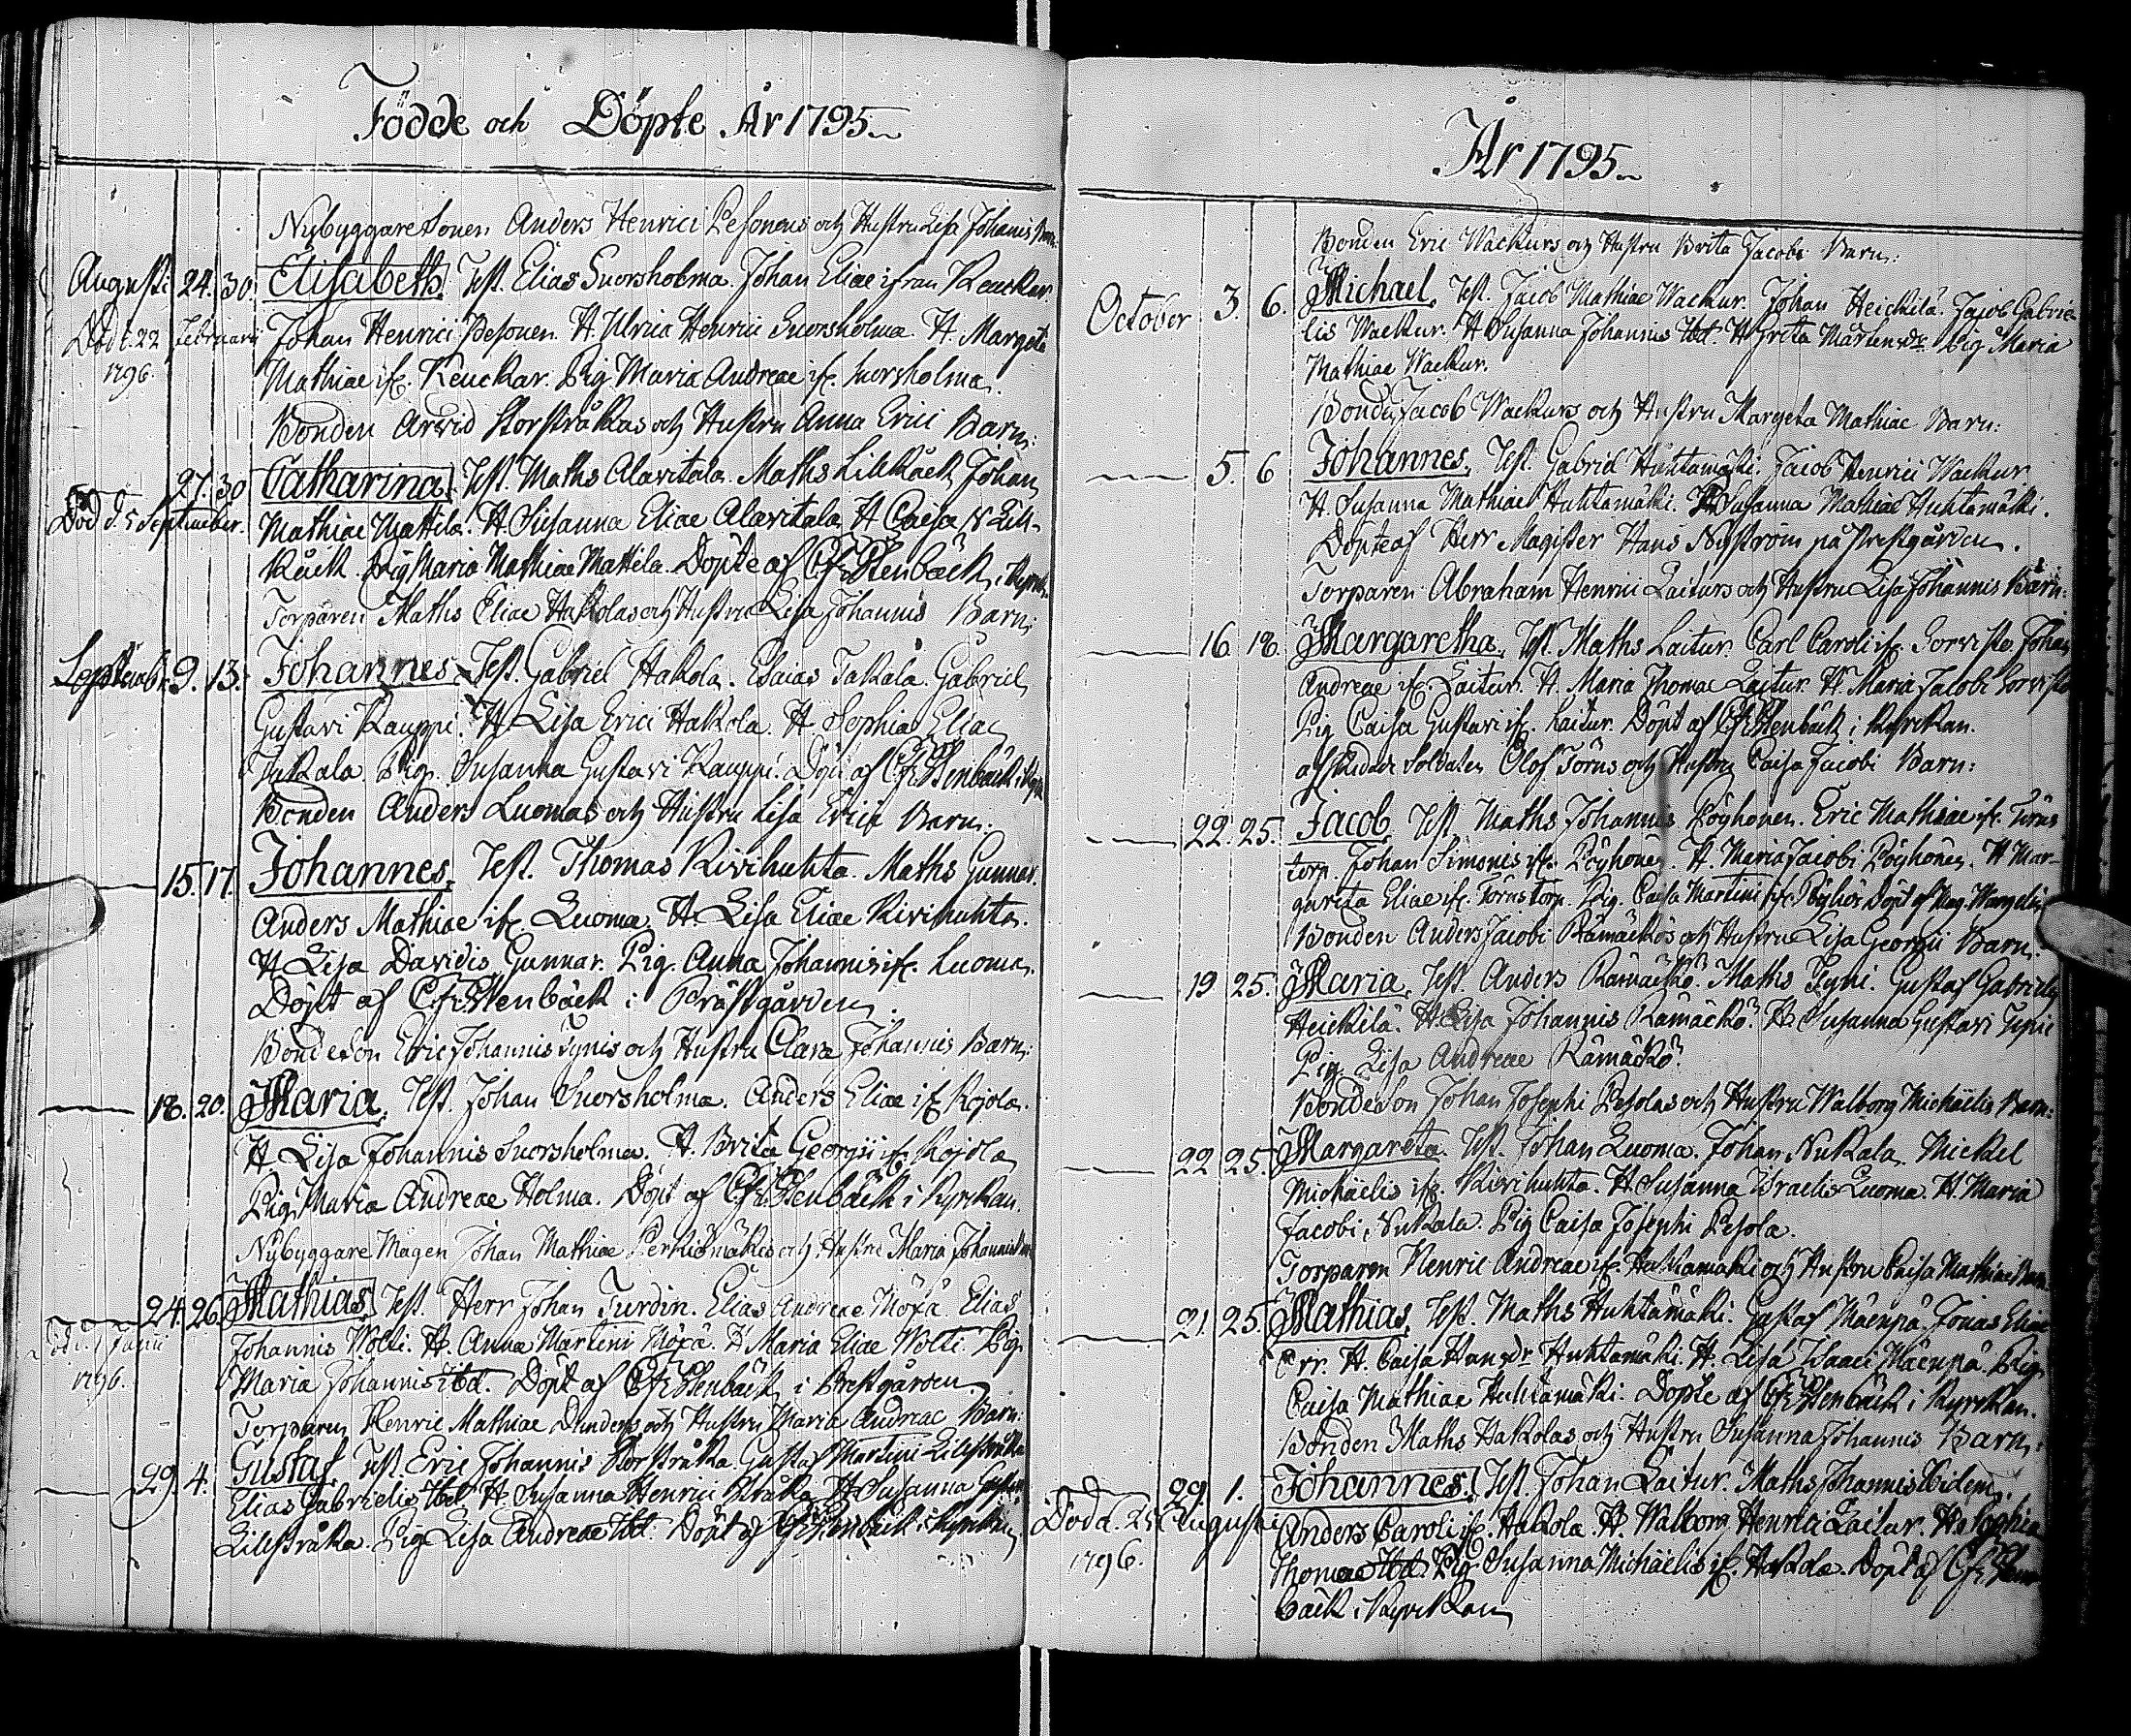 Födde och Döpte År 1795.
Nybyggare Sonen Anders Henrici Pesonens och Hustru Lisa Johannis Barn:
Augusti 24. 30. Elisabeth. Test. Elias Suorsholma. Johan Eliae ifrån Keuckar.
Död d. 22 Februarii Johan Henrici Pesonen. H. Ulrica Henrici Suorsholma. H. Margeta
1796. Mathiae if. Keuckar. Pig. Maria Andreae if. Suorsholma.
Bonden Arvid Storstråkas och Hustru Anna Erici Barn:
27. 30 Catharina. Test. Maths Alavitala. Maths Lillkäck. Johan
Död d. 5 September. Mathiae Mattila. H. Susanna Eliae Alavitala. H. Caisa Lill-
käck. Pig. Maria Mathiae Mattila. Döpte af Stenbäck i Kyrk.
Torparen Maths Eliae Hakolas och Hustru Lisa Johannis Barn:
September 9. 13. Johannes. Test. Gabriel Hakola. Esaias Takala. Gabriel
Gustavi Kauppi. H. Lisa Erici Hakola. H. Sophia Eliae
Takala. Pig. Susanna Gustavi Kauppi. Döpt af Stenbäck i Kyrk
Bonden Anders Luomas och Hustru Lisa Erici Barn:
15. 17. Johannes. Test. Thomas Kivihuhta. Maths Gunnar.
Anders Mathiae if. Luoma. H. Lisa Eliae Kivihuhta.
H Lisa Davidis Gunnar. Pig. Anna Johannis if. Luoma.
Döpt af Stenbäck i Prästgården.
Bondeson Eric Johannis Tynis och Hustru Clara Johannis Barn:
18. 20. Maria. Test. Johan Suorsholma. Anders Eliae if. Kojola.
H Lisa Johannis Suorsholma. H. Brita Georgii if. Kojola
Pig. Maria Andreae Holma. Döpt af Stenbäck i Kyrckan.
Nybyggare Mågen Johan Mathiae Perkiömäkis och Hustru Maria Johannis
24. 26. Mathias. Test. Herr Johan Turdin. Elias Andreae Möxä. Elias
Död d. Junii Johannis Wolti. H. Anna Martini Möxä. H Maria Eliae Wolti. Pig.
1796. Maria Johannis ibd. Döpt af Stenbäck i Prestgården.
Torparen Henric Mathiae och Hustru Maria Andreae Barn:
29. 4. Gustaf. Test. Eric Johannis Storstråka. Gustaf Martini Lillstråka
Elias Gabrielis Ibd. H. Susanna Henrici Stråka. H Susanna
Lillstråka. Pig. Lisa Andreae Ibd. Döpt af Stenbäck i Kyrckan
År 1795.
Bonden Eric Wackurs och Hustru Brita Jacobi Barn:
October 3. 6. Michael. Test. Jacob Mathiae Wackur. Johan Heickilä. Jacob Gabrie-
lis Wackur. H Susanna Johannis Ibd. H Greta Mårtensdr. Pig Maria
Mathiae Wackur.
Bonden Jacob Wackurs och Hustru Margeta Mathiae Barn:
5. 6 Johannes. Test. Gabriel Huhtamäki. Jacob Henrici Wackur.
H. Susanna Mathiae Huhtamäki. Susanna Mathiae Huhtamäki.
Döpte af Herr Magister Hans Nyström på Prestgården.
Torparen Abraham Henrici Laiturs och Hustru Lisa Johannis Barn:
16. 18. Margaretha. Test. Maths Laitur. Carl Caroli if. Sorvisto. Johan
Andreae if. Laitur. H. Maria Thomae Laitur. H. Maria Jacobi Sorvisto
Pig Caisa Gustavi if. Laitur. Döpt af Stenbäck i Kyrckan.
afskedade Soldaten Olof Törns och Hustru Caisa Jacobi Barn:
22. 25. Jacob. Test. Maths Johannis Pöyhönen. Eric Mathiae if. Törns
torp. Johan Simonis if. Pöyhönen. H. Maria Jacobi Pöyhönen. H Mar-
gareta Eliae if. Törnstorp. Pig. Caisa Martini if. Pöyhön Döpt af
Bonden Anders Jacobi Rämäckös och Hustru Lisa Georgii Barn:
19 25. Maria. Test. Anders Rämäckö. Maths Tyni. Gustaf Gabrielis
Heickilä. H. Lisa Johannis Rämäckö. H. Susanna Gustavi Tyni
Pig. Lisa Andreae Rämäckö
Bondeson Johan Josephi Pesolas och Hustru Walborg Michaëlis Barn:
22 25. Margareta. Test. Johan Luoma. Johan Nukala. Mickel
Michaëlis if. Kivihuhta. H. Susanna Israelis Luoma. H. Maria
Jacobi Nukala. Pig Caisa Josephi Pesola.
Torparen Henric Andreae if. Huhtamäki och Hustru Caisa Mathiae Barn
21. 25. Mathias. Test. Maths Huhtamäki. Gustaf Mäenpä. Jonas Eliae
H. Caisa Hansdr Huhtamäki. H. Lisa Isaaci Mäenpä. Pig.
Caisa Mathiae Huhtamäki. Döpte af Stenbäck i Kyrckan.
Bonden Maths Hakolas och Hustru Susanna Johannis Barn:
29. 1. Johannes. Test. Johan Laitur. Maths Johannis
Död d. 25 Augusti Anders Caroli if. Hakola. H. Walborg Henrici Laitur. H. Sophia
1796. Thomae Ibd. Pig Susanna Michaëlis if. Hakola. Döpt af Sten-
bäck i Kyrckan